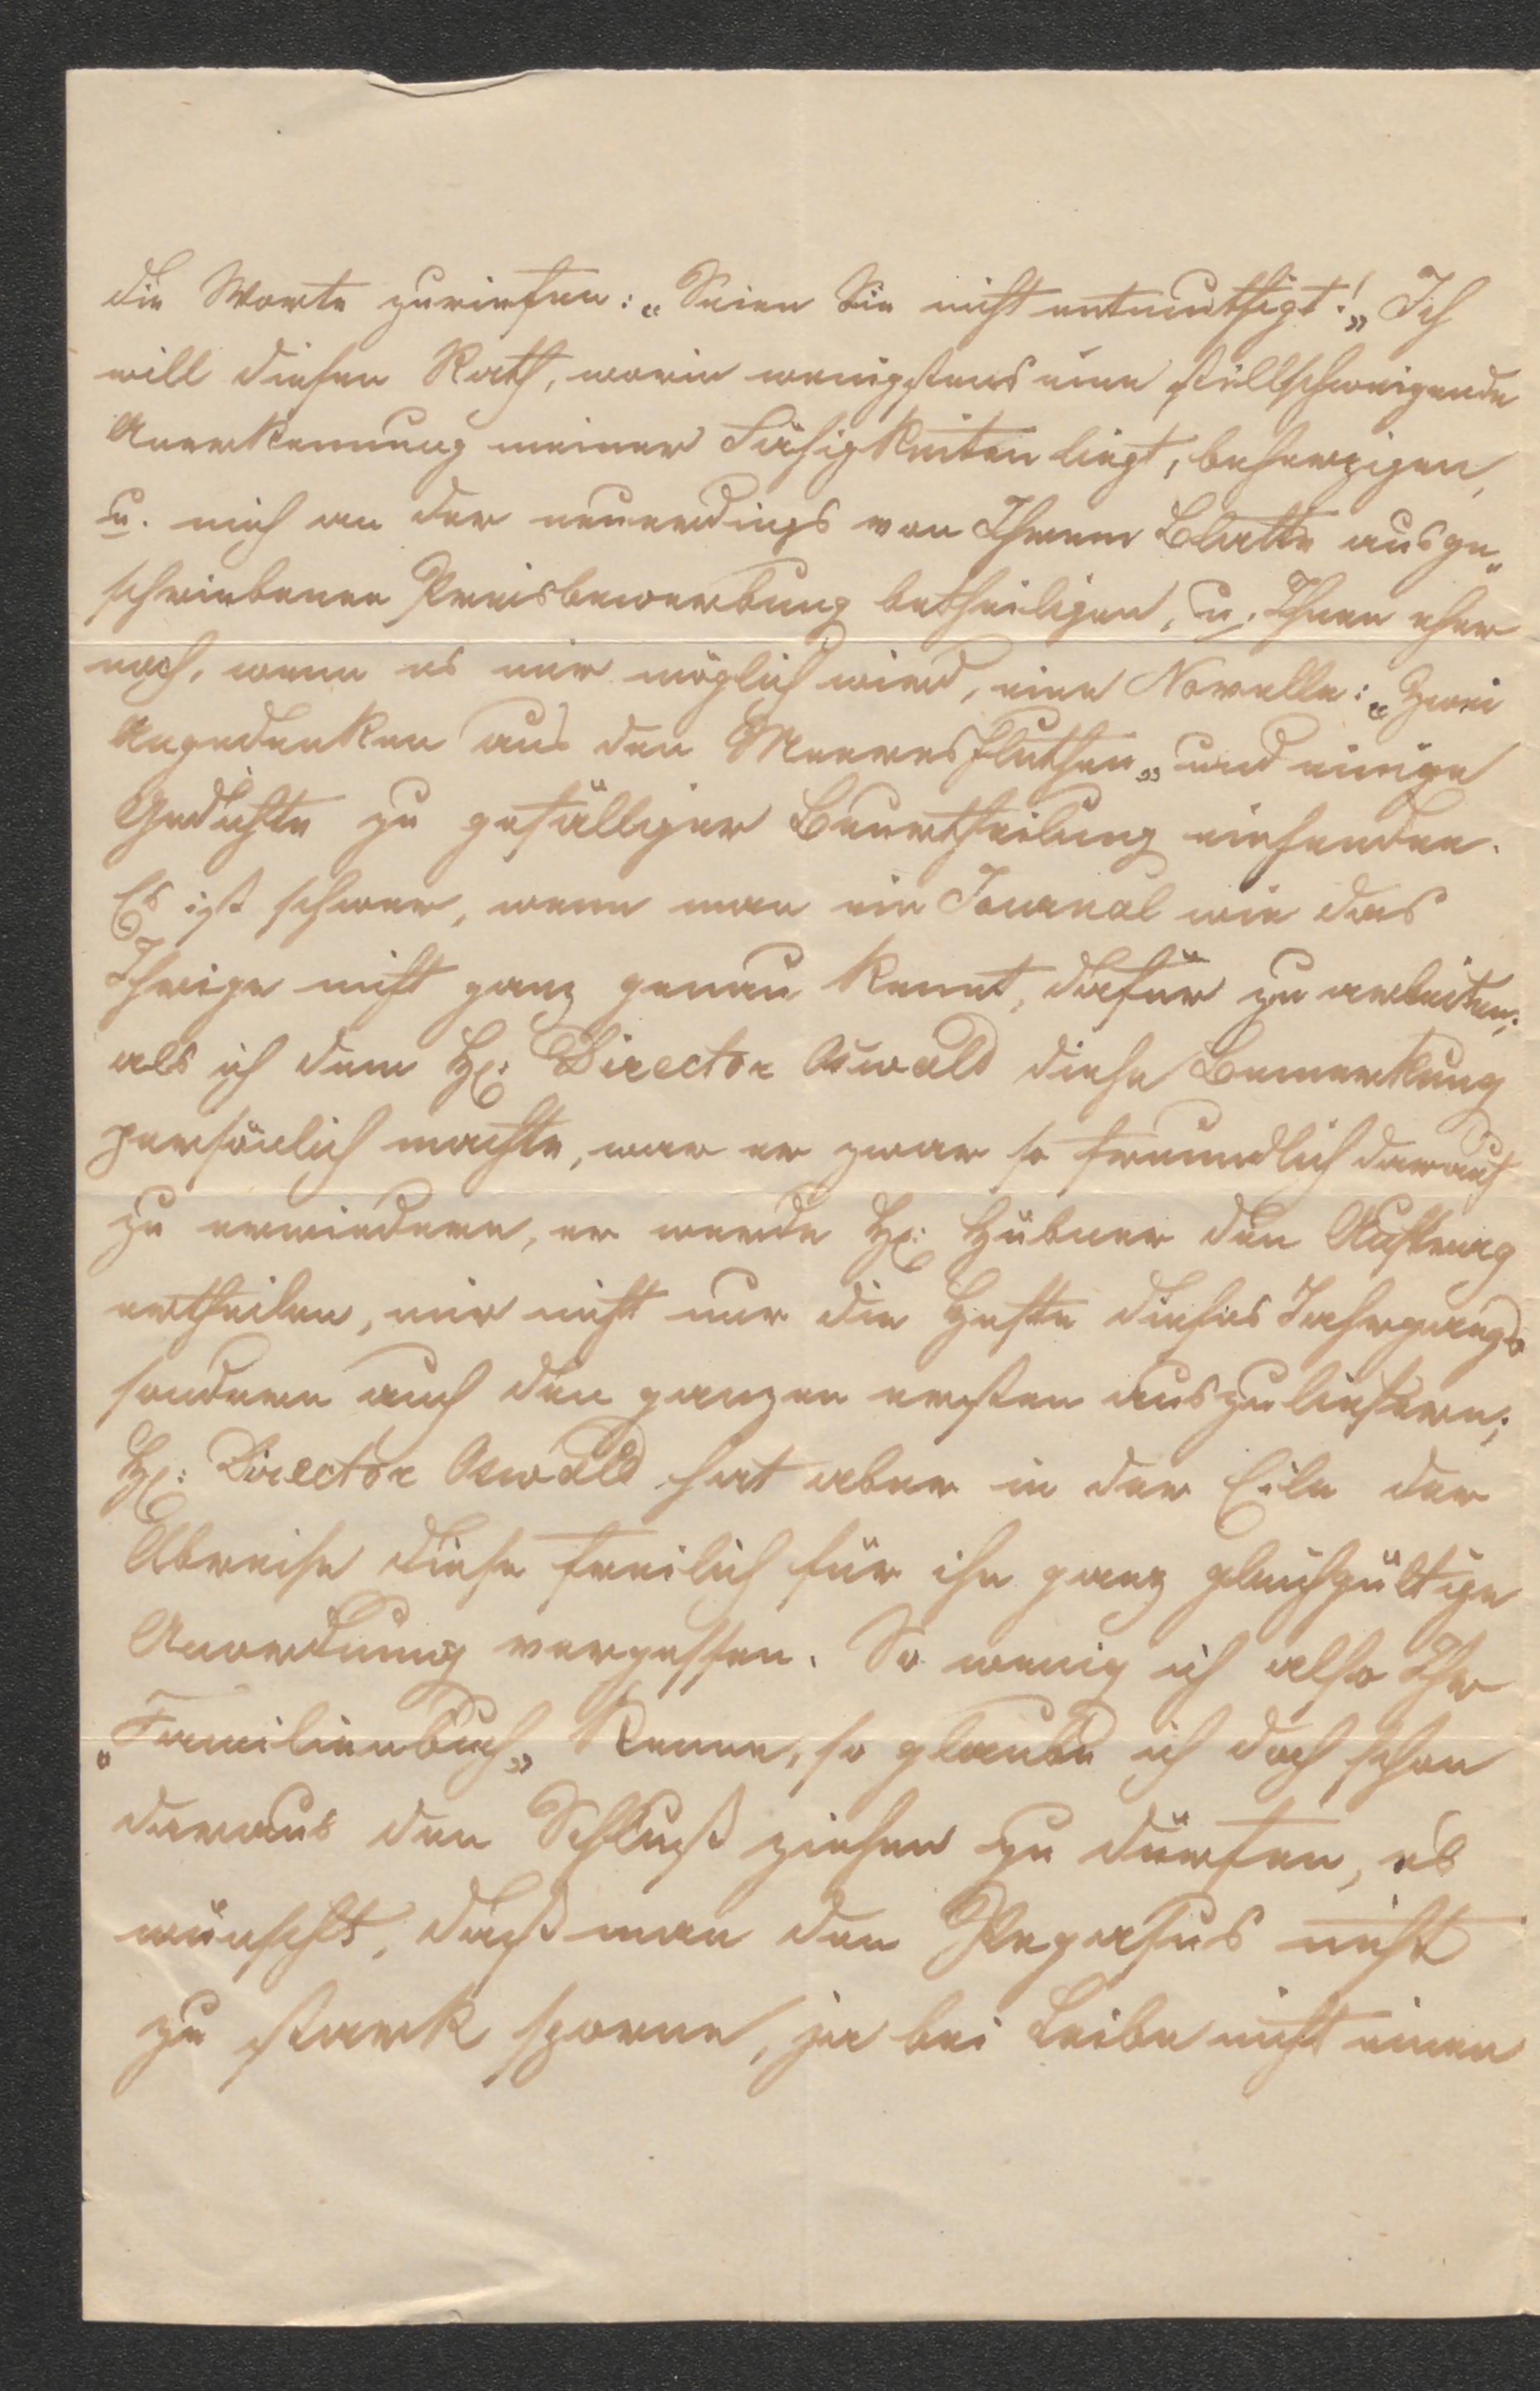 die Worte zuriefen: „Seien Sie nicht entmuthigt!„ Ich
will diesen Rath, worin wenigstens eine stillschweigende
Anerkennung meiner Fähigkeiten liegt, beherzigen,
u. mich an der neuerdings von Ihrem Blatte ausge„
schriebenen Preisbewerbung betheiligen, u. Ihnen eher
noch, wenn es mir möglich wird, eine Novelle: „Zwei
Angedenken aus den Meeresfluthen„ und einige
Gedichte zu gefälliger Beurtheilung einsenden.
Es ist schwer, wenn man ein Journal wie das
Ihrige nicht ganz genau kennt, dafür zu arbeiten;
als ich dem H: Director Oswald diese Bemerkung
persönlich machte, war er zwar so freundlich darauf
zu erwiedern, er werde H: Hübner den Auftrag
ertheilen, mir nicht nur die Hefte dieses Jahrgangs
sondern auch den ganzen ersten auszuliefern;
H: Director Oswald hat aber in der Eile der
Abreise diese freilich für ihn ganz gleichgültige
Anordnung vergessen. So wenig ich also Ihr
„Familienbuch„ kenne, so glaube ich doch schon
daraus den Schluß ziehen zu dürfen, es
wünscht, daß man den Pegasus nicht
zu stark sporne, ja bei Leibe nicht einen